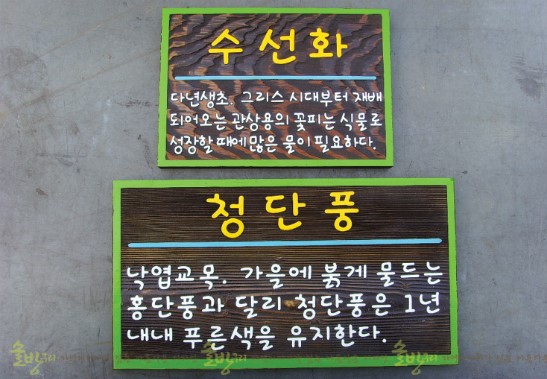 수선화
다년생초. 그리스 시대부터 재배
되어오는 관상용의 꽃피는 식물로
성장할 때에 많은 물이 필요하다.
청단풍
낙엽교목. 가을에 붉게 물드는
홍단풍과 달리 청단풍은 1년
내내 푸른색을 유지한다.